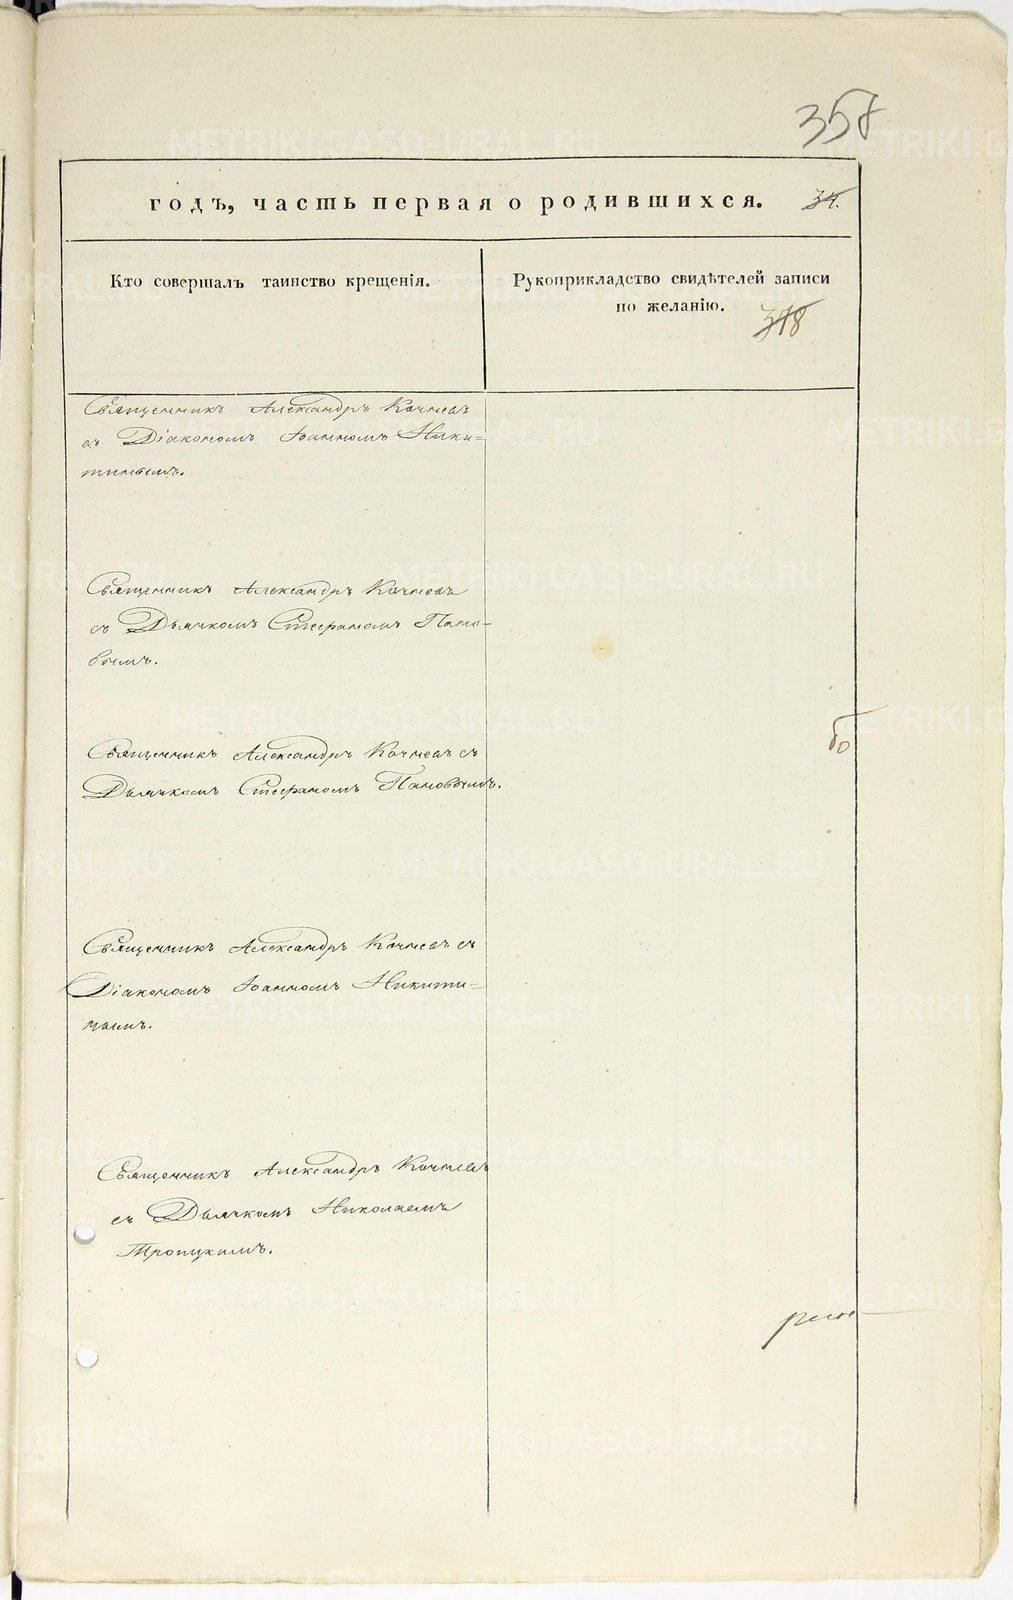 358
годъ, часть первая о родившихся. 34.
Кто совершалъ таинство крещенія.
Рукоприкладство свидѣтелей записи
по желанію.
378
Священникъ Александръ Кочневъ
съ Діакономъ Іоанномъ Ники=
тинымъ.
Священникъ Александръ Кочневъ
съ Дьячкомъ Стефаномъ Пано-
вымъ.
Священникъ Александръ Кочневъ съ
Дьячкомъ Стефаномъ Пановымъ.
Священникъ Александръ Кочневъ съ
Діакономъ Іоанномъ Никити=
нымъ.
Священникъ Александръ Кочневъ
съ Дьячкомъ Николаемъ
Троицкимъ.
METRIKI.GASO-URAL.RU